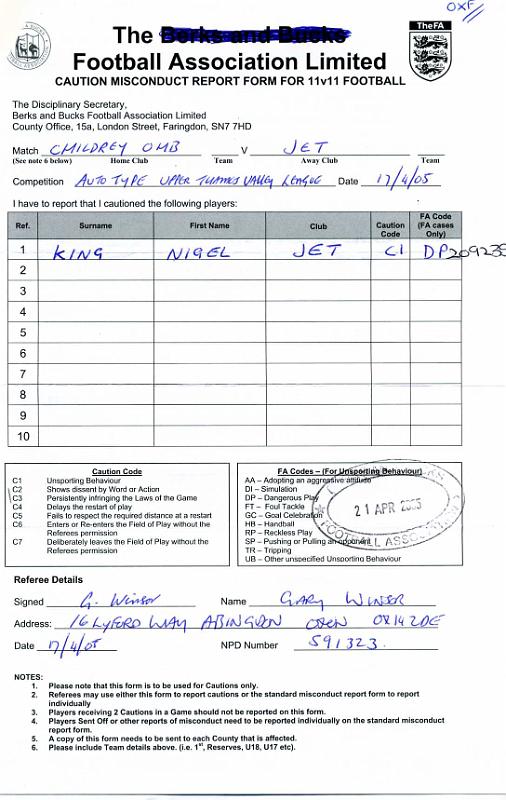 OXF
The Berks and Bucks
Football Association Limited
TheFA
CAUTION MISCONDUCT REPORT FORM FOR 11v11 FOOTBALL
The Disciplinary Secretary,
Berks and Bucks Football Association Limited
County Office, 15a, London Street, Faringdon, SN7 7HD
Match CHILDREY OMB V JET
(See note 6 below) Home Club Team Away Club Team
Competition AUTO TYPE UPPER THAMES VALLEY LEAGUE Date 17/4/05
I have to report that I cautioned the following players:
Ref. Surname First Name Club Caution Code FA Code (FA cases Only)
1 KING NIGEL JET C1 DP 209235
2
3
4
5
6
7
8
9
10
Caution Code
C1 Unsporting Behaviour
C2 Shows dissent by Word or Action
C3 Persistently infringing the Laws of the Game
C4 Delays the restart of play
C5 Fails to respect the required distance at a restart
C6 Enters or Re-enters the Field of Play without the
Referees permission
C7 Deliberately leaves the Field of Play without the
Referees permission
FA Codes – (For Unsporting Behaviour)
AA – Adopting an aggressive attitude
DI – Simulation
DP – Dangerous Play
FT – Foul Tackle
GC – Goal Celebration
HB – Handball
RP – Reckless Play
SP – Pushing or Pulling an opponent
TR – Tripping
UB – Other unspecified Unsporting Behaviour
21 APR 2005
FOOTBALL ASSOCIATION
Referee Details
Signed G. Winsor Name GARY WINSOR
Address: 16 LYFORD WAY ABINGDON OXON OX14 2DE
Date 17/4/05 NPD Number 591323
NOTES:
1. Please note that this form is to be used for Cautions only.
2. Referees may use either this form to report cautions or the standard misconduct report form to report
individually
3. Players receiving 2 Cautions in a Game should not be reported on this form.
4. Players Sent Off or other reports of misconduct need to be reported individually on the standard misconduct
report form.
5. A copy of this form needs to be sent to each County that is affected.
6. Please include Team details above. (i.e. 1st, Reserves, U18, U17 etc).